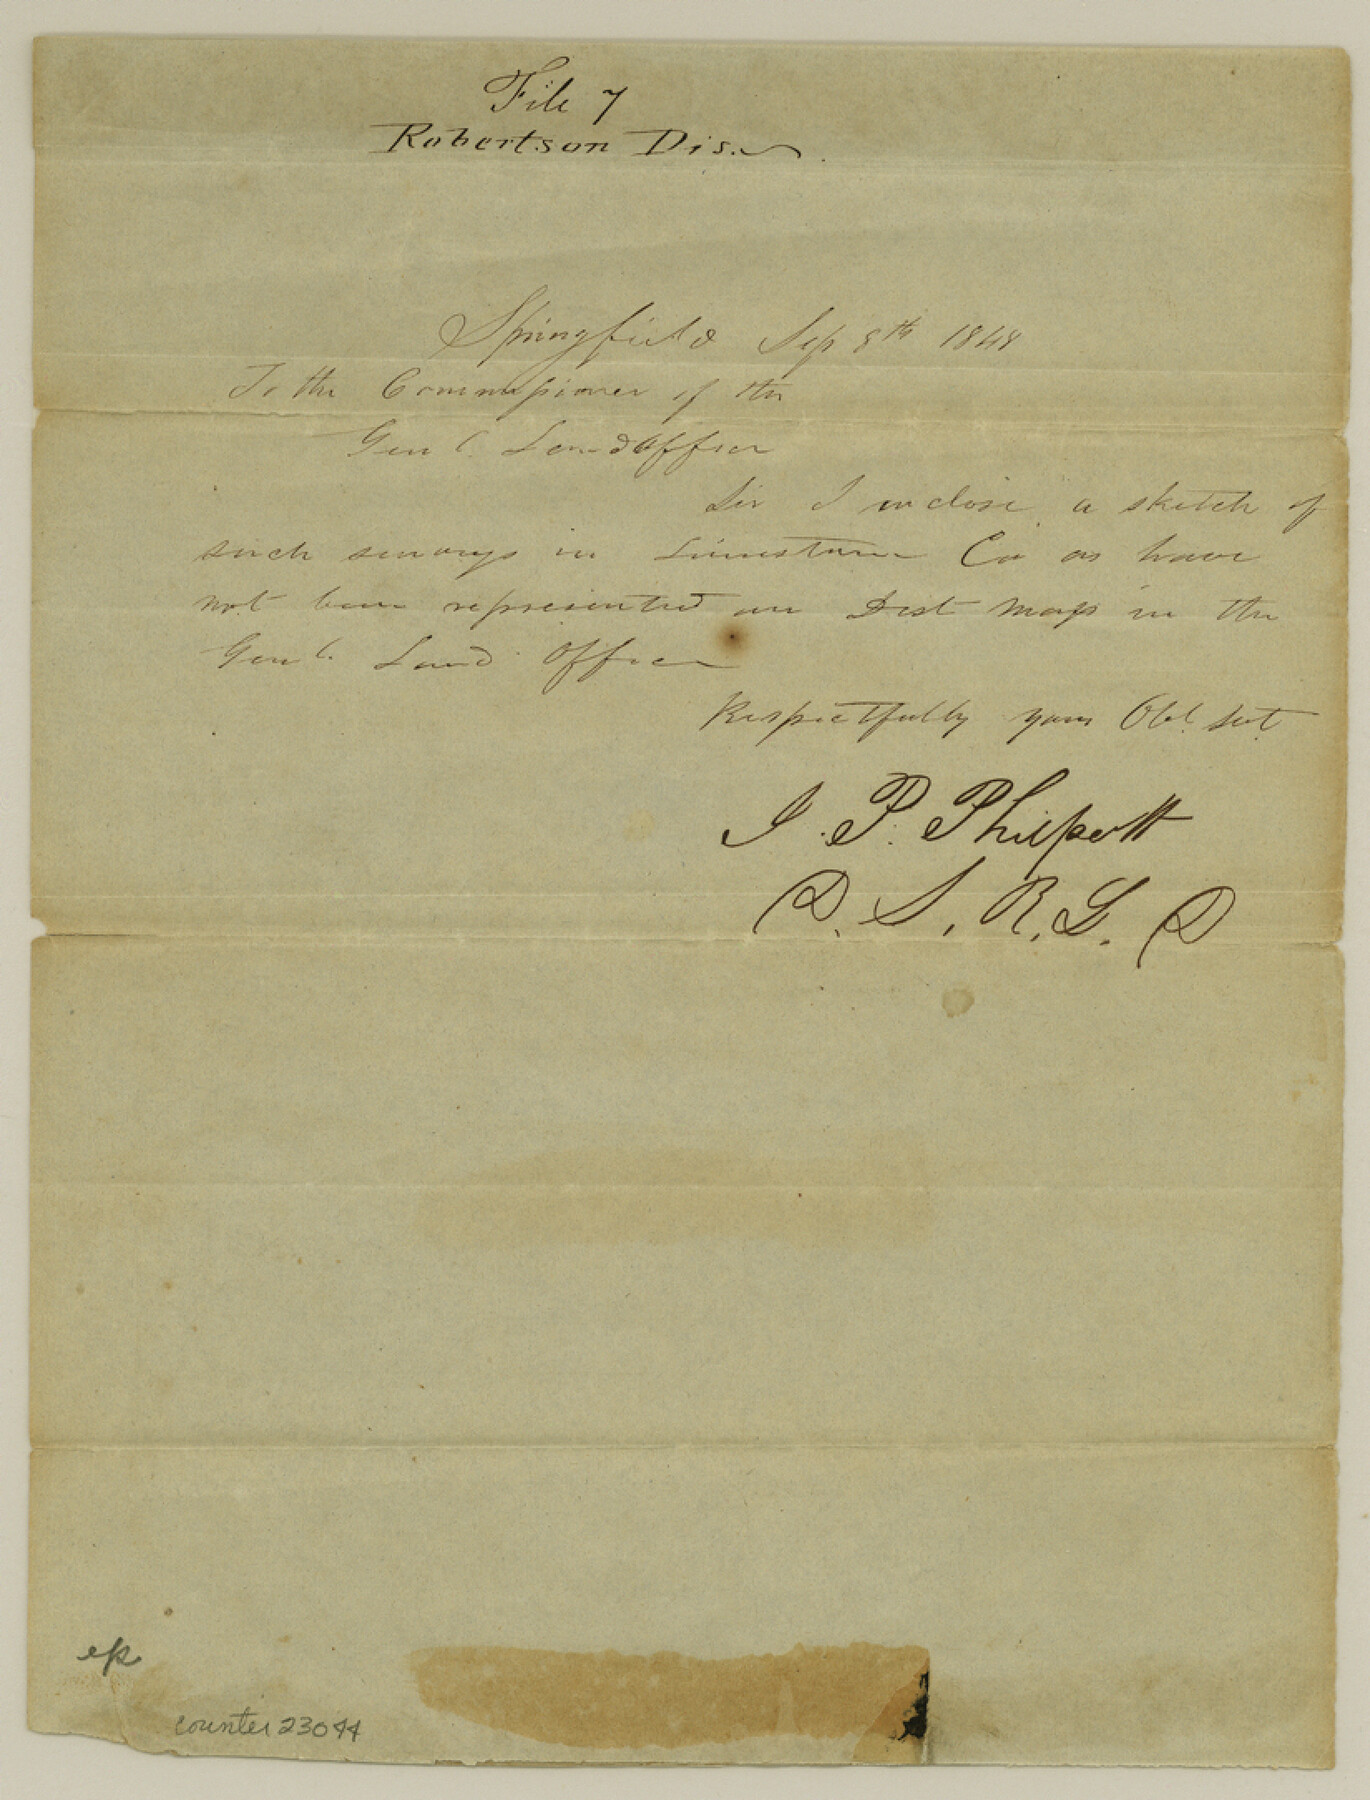 File 7
Robertson Dis.
Springfield Sep 8th 1848
To the Commissioner of the
Genl. Land Office
Sir I inclose a sketch of
such surveys in Limestone Co as have
not been represented on Dist map in the
Genl. Land Office
Respectfully your Obt. Svt.
J. P. Philpott
D. S. R. L. D
ep
counter 23044